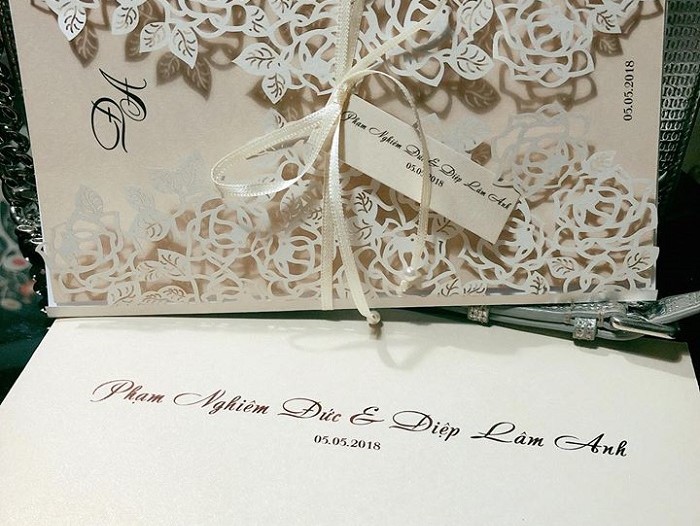 ĐA
05.05.2018
Phạm Nghiêm Đức & Diệp Lâm Anh
05.05.2018
Phạm Nghiêm Đức & Diệp Lâm Anh
05.05.2018